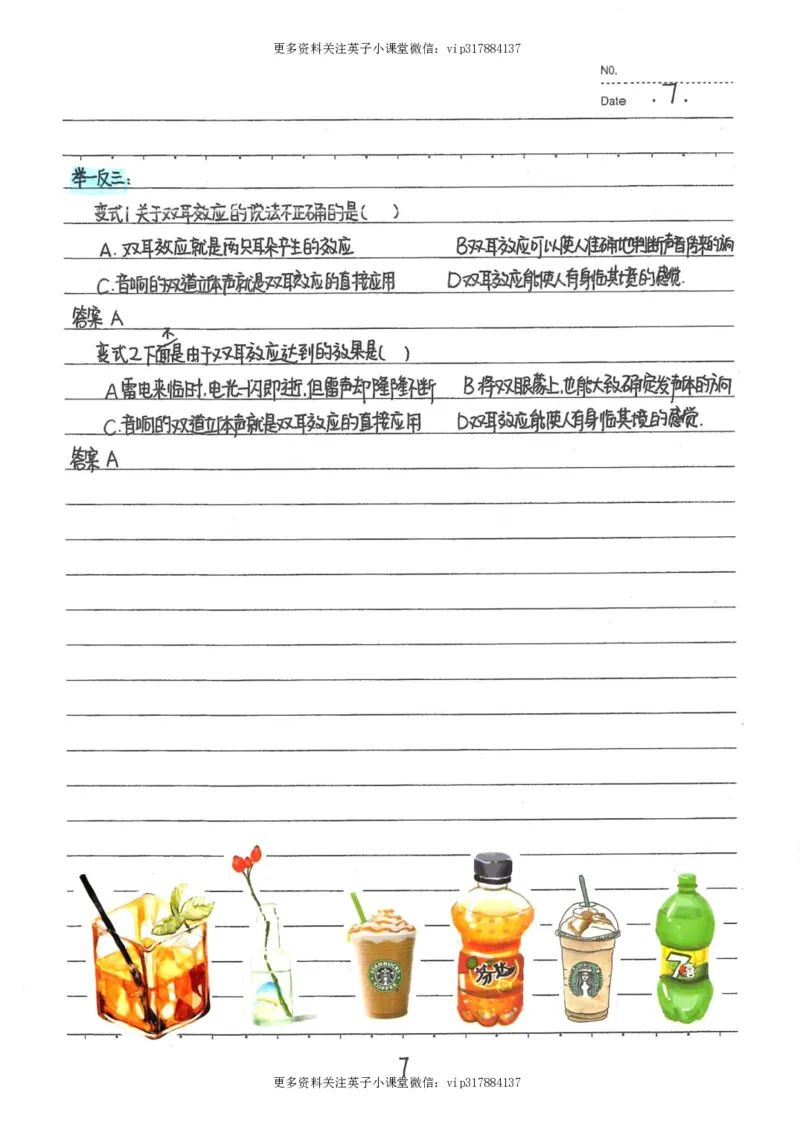 更多资料关注英子小课堂微信：vip317884137
N0.
Date .7.
举一反三：
变式1关于双耳效应的说法不正确的是( )
A. 双耳效应就是两只耳朵产生的效应 B双耳效应可以使人准确地判断声音传来的方向
C.音响的双道立体声就是双耳效应的直接应用 D双耳效应能使人有身临其境的感觉.
答案 A
不
变式2下面是由于双耳效应达到的效果是( )
A雷电来临时,电光一闪即逝,但雷声却隆隆不断 B将双眼蒙上,也能大致确定发声体的方向
C.音响的双道立体声就是双耳效应的直接应用 D双耳效应能使人有身临其境的感觉.
答案 A
STARBUCKS COFFEE
芬达
7喜
7
更多资料关注英子小课堂微信：vip317884137